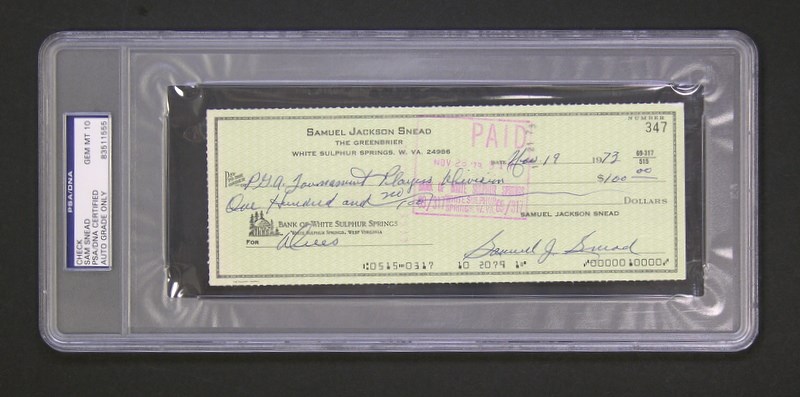 PSA/DNA
CHECK
SAM SNEAD
PSA/DNA CERTIFIED
AUTO GRADE ONLY
GEM MT 10
83511555
SAMUEL JACKSON SNEAD
THE GREENBRIER
WHITE SULPHUR SPRINGS, W. VA. 24986
NUMBER
347
PAID
NOV 1973
69-317
515
P.G.A. Tournament Players Division $100 00
One Hundred and no/100 DOLLARS
SAMUEL JACKSON SNEAD
BANK OF WHITE SULPHUR SPRINGS
WHITE SULPHUR SPRINGS, WEST VIRGINIA
FOR Dues Samuel J. Snead
0515 0317 10 2079 1 0000010000